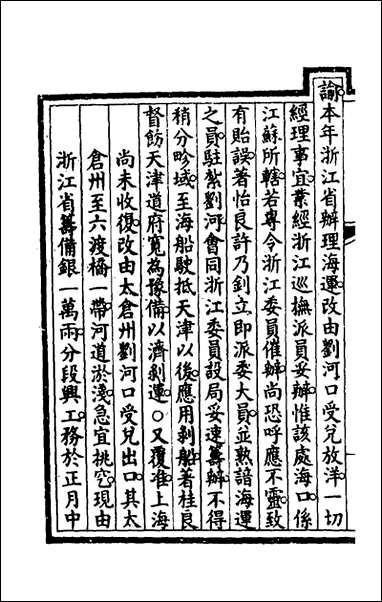 諭本年浙江省辦理海運改由劉河口受兌放洋一切
經理事宜業經浙江巡撫派員妥辦惟該處海口係
江蘇所轄若專令浙江委員催辦尚恐呼應不靈致
有貽誤著怡良許乃釗立即派委大員並熟諳海運
之員駐紮劉河會同浙江委員設局妥速籌辦不得
稍分畛域至海船駛抵天津以後應用剝船著桂良
督飭天津道府寬為豫備以濟剝運○又覆准上海
尚未收復改由太倉州劉河口受兌出口其太
倉州至六渡橋一帶河道淤淺急宜挑空現由
浙江省籌備銀一萬兩分段興工務於正月中